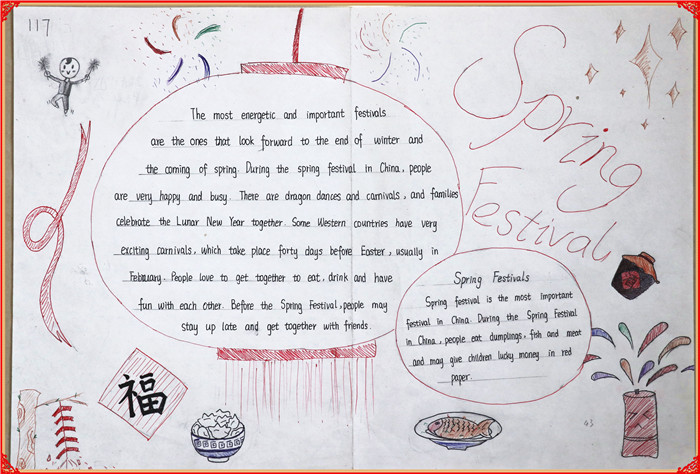 117
Spring
Festival
The most energetic and important festivals
are the ones that look forward to the end of winter and
the coming of spring. During the spring festival in China, people
are very happy and busy. There are dragon dances and carnivals, and families
celebrate the Lunar New Year together. Some Western countries have very
exciting carnivals, which take place forty days before Easter, usually in
February. People love to get together to eat, drink and have
fun with each other. Before the Spring Festival, people may
stay up late and get together with friends.
Spring Festivals
Spring festival is the most important
festival in China. During the Spring Festival
in China, people eat dumplings, fish and meat
and may give children lucky money in red
paper.
福